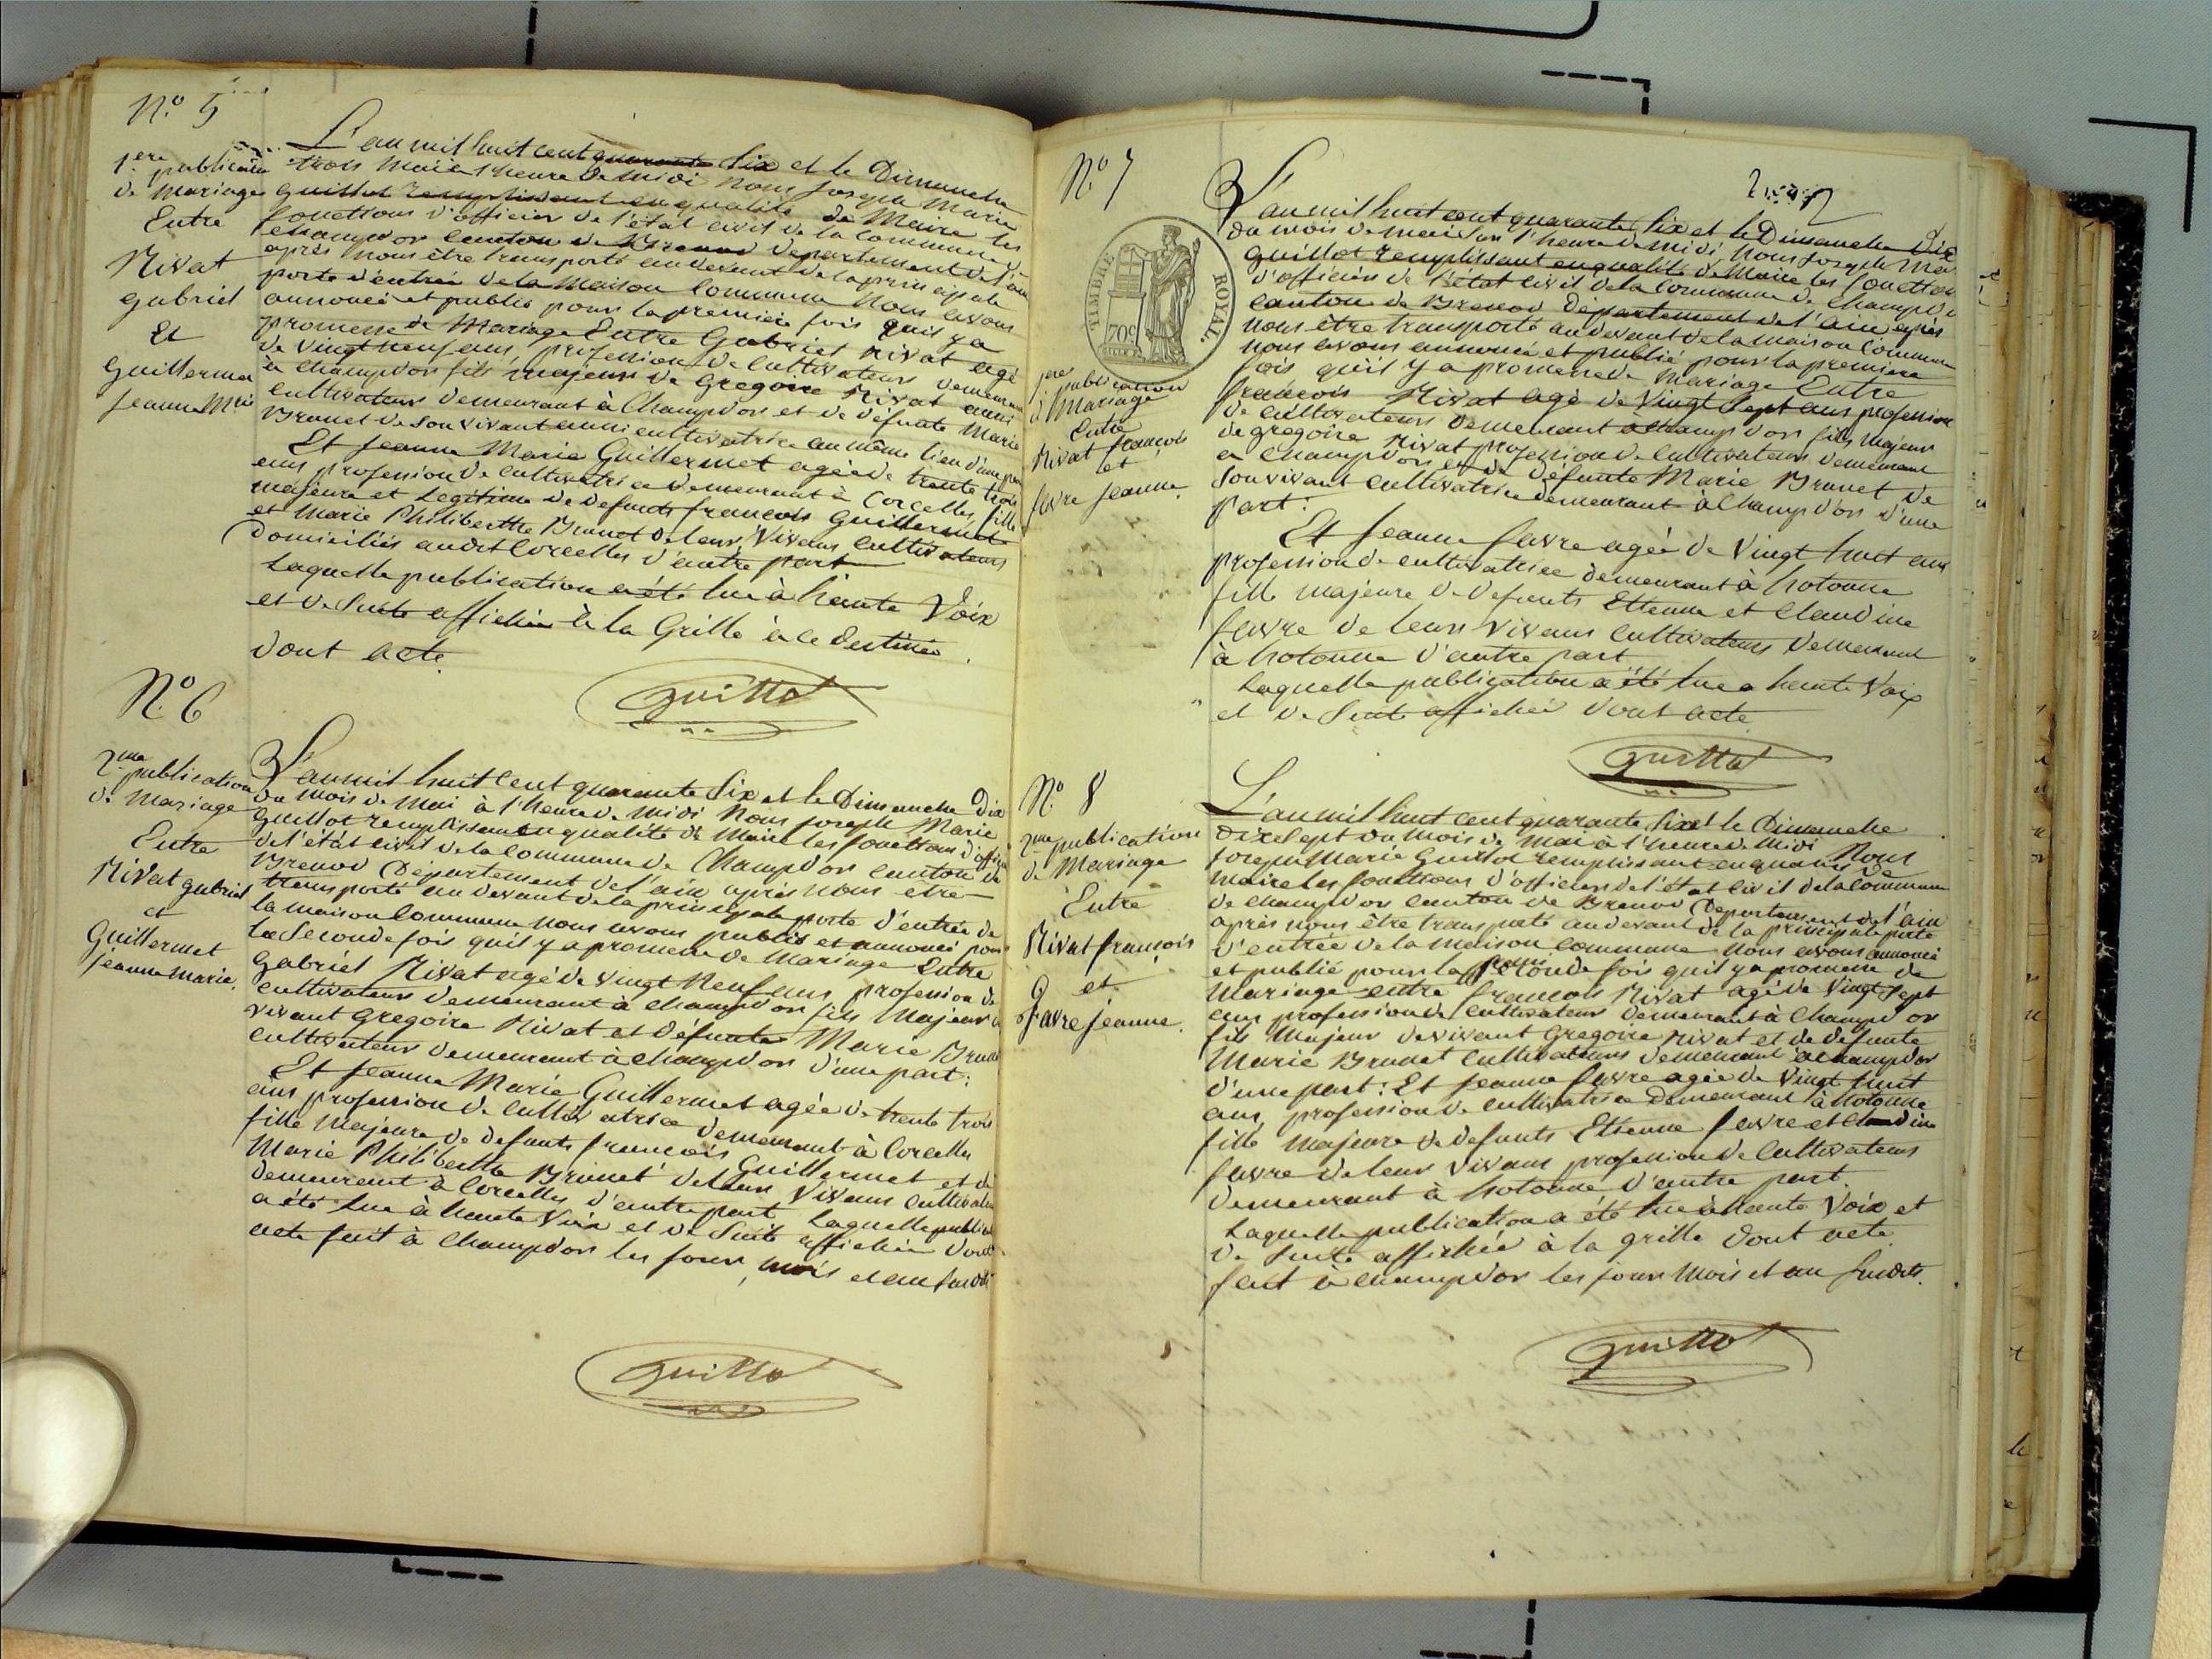 N.° 5
1.ere publication
de Mariage
Entre
Nivat
gabriel
Et
Guillermet
Jeanne Mrie
L'an mil huit cent quarante Six et le Dimanche
trois Mai à l'heure de Midi Nous Joseph Marie
Guillot remplissant en qualité de Maire les
fonctions d'officier de l'état civil de la commune de
champdor Canton de Brenod Departement de l'ain
après nous être transporté au devant de la principale
porte d'entrée de la Maison Commune Nous avons
annoncé et publié pour la première fois quil y a
promesse de Mariage Entre Gabriel Nivat agé
de Vingt neuf ans, profession de Cultivateur demeurant
à champdor fils majeur de Gregoire Nivat aussi
Cultivateur demeurant à Champdor et de défunte Marie
Brunet de Son vivant aussi cultivatrice au même lieu d'une part
Et Jeanne Marie Guillermet agée de trente trois
ans profession de cultivatrice demeurant à Corcelles fille
majeure et Legitime de defunts françois Guillermet
et Marie Philiberthe Brunet de leurs Vivans Cultivateurs
Domiciliés audit Corcelles d'autre part
Laquelle publication a été lue à haute Voix
et de Suite affichée à la Grille à ce destinée.
dont acte
Guillot
N.° 6
2.me publication
de Mariage
Entre
Nivat gabriel
et
Guillermet
Jeanne Marie.
L'an mil huit Cent quarante Six et le Dimanche Dix
du mois de Mai à l'heure de Midi Nous Joseph Marie
Guillot remplissant en qualité de Maire les fonctions d'officier
de l'état civil de la Commune de Champdor Canton de
Brenod Département de l'ain après nous etre
transporté au devant de la principale porte d'entrée de
la Maison Commune nous avons publié et annoncé pour
la Seconde fois quil y a promesse de Mariage Entre
Gabriel Nivat agé de Vingt Neuf ans profession de
Cultivateur demeurant à champdor fils Majeur de
vivant Gregoire Nivat et défunte Marie Brunet
Cultivateur demeurant à champdor d'une part:
Et Jeanne Marie Guillermet agée de trente trois
ans profession de Cultivatrice demeurant à Corcelles
fille Majeure de defunts françois Guillermet et de
Marie Philiberthe Brunet de leurs Vivans Cultivateurs
demeurant à Corcelles d'autre part Laquelle publication
a été lue à haute Voix et de Suite affichée dont
acte fait à Champdor les jour, mois et an susdits
Guillot
N.° 7
TIMBRE ROYAL.
70c
1ere
publication
de Mariage
Entre
Nivat françois
et
favre Jeanne.
L'an mil huit cent quarante Six et le Dimanche Dix
du mois de mai Sur l'heure de midi Nous Joseph Marie
Guillot remplissant en qualité de Maire les fonctions
d'officier de l'état civil de la Commune de Champdor
Canton de Brenod Département de l'ain après
nous être transporté au devant de la maison Commune
nous avons annoncé et publié pour la première
fois quil y a promesse de Mariage Entre
françois Nivat agé de Vingt Sept ans profession
de Cultivateur demeurant à champdor fils Majeur
de gregoire Nivat profession de Cultivateur demeurant
à Champdor et de défunte Marie Brunet de
son vivant Cultivatrice demeurant à Champdor d'une
part:
Et Jeanne favre agée de Vingt huit ans
profession de cultivatrice demeurant à hotonne
fille majeure de defunts Etienne et Claudine
favre de leurs Vivans Cultivateurs demeurant
à hotonne d'autre part
Laquelle publication a été lue a haute Voix
et de Suite affichée dont acte
Guillot
N.° 8
2me publication
de Mariage
Entre
Nivat françois
et
favre Jeanne.
L'an mil huit cent quarante Six et le Dimanche
Dix Sept du Mois de Mai à l'heure de Midi Nous
Joseph Marie Guillot remplissant en qualité de
Maire les fonctions d'officier de l'état civil de la Commune
de champdor Canton de Brenod Departement de l'ain
après nous être transporté au devant de la principale porte
d'entrée de la Maison Commune Nous avons annoncé
et publié pour la Seconde fois quil y a promesse de
Mariage entre françois Nivat agé de Vingt Sept
ans profession de Cultivateur demeurant à Champdor
fils Majeur de vivant Gregoire Nivat et de défunte
Marie Brunet Cultivateurs demeurant à champdor
d'une part: Et Jeanne favre agée de Vingt huit
ans profession de Cultivatrice demeurant à hotonne
fille Majeure de defunts Etienne favre et Claudine
favre de leur Vivans profession de Cultivateurs
demeurant à hotonne d'autre part.
Laquelle publication a été lue à haute Voix et
de Suite affichée à la grille dont acte
fait à champdor les jour Mois et an susdits.
Guillot